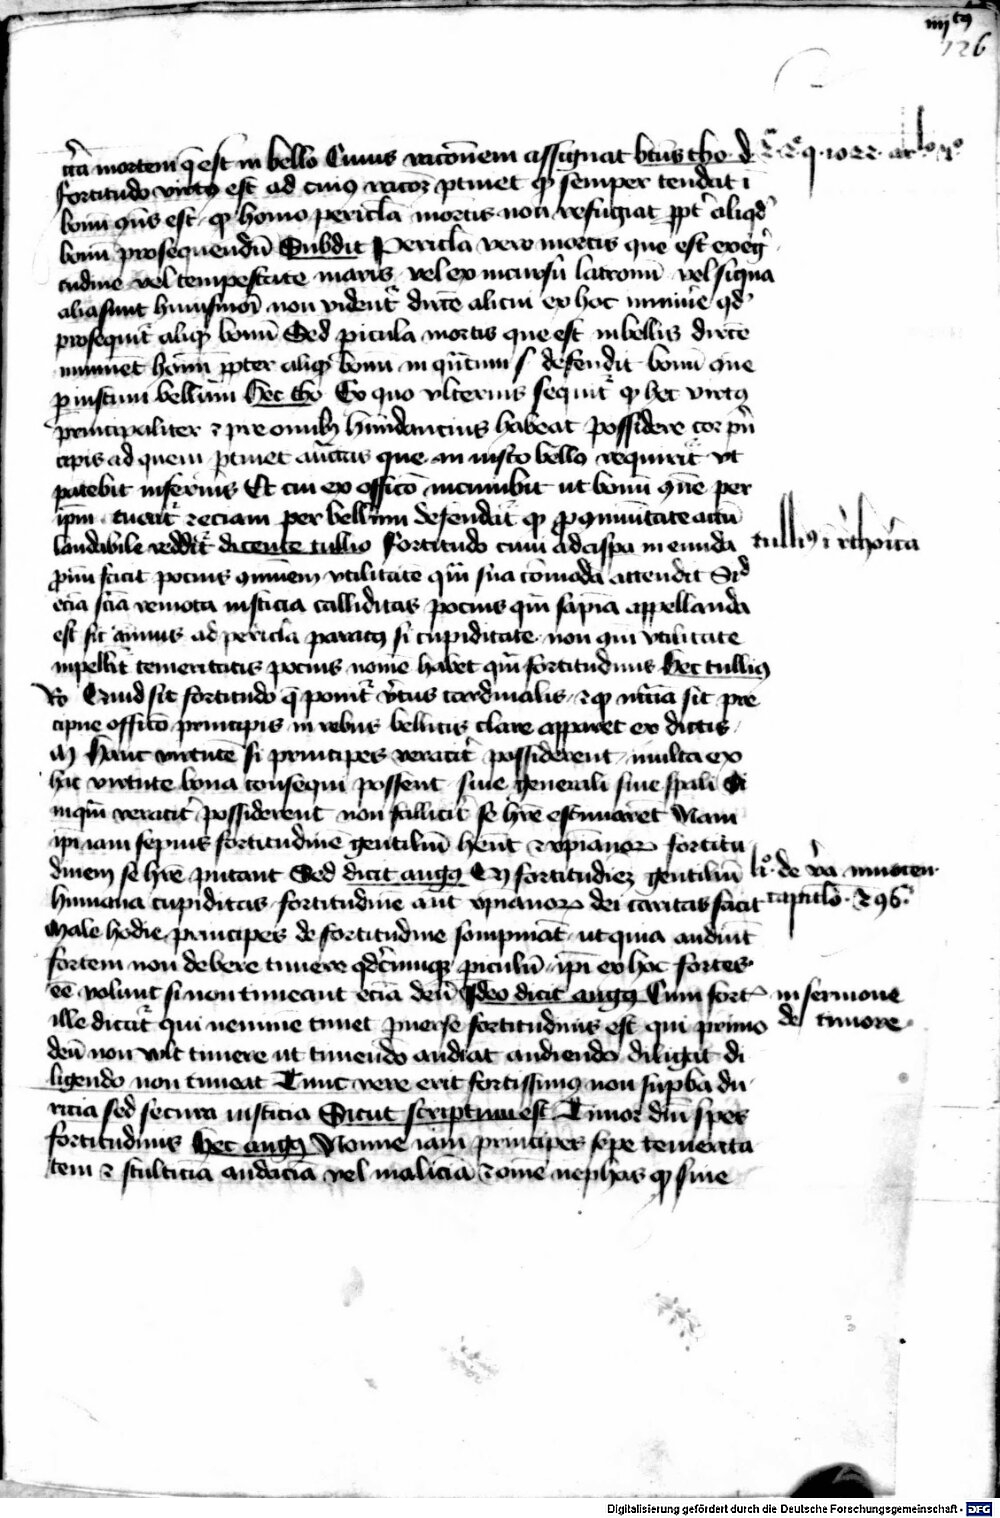 iiijtus
126
circa mortem que est in bello Cuius racionem assignat btus tho. d. 2a 2e q. 1022 ar lo 4o
fortitudo virtus est ad cuius racionem ptinet qd semper tendat i
bonum gns est qd homo pericla mortis non refugiat ppter aliqd
bonum prosequendum Subdit Pericla vero mortis que est ex egri
tudine vel tempestate maris vel ex incursu latronum vel si qua
alia sunt huiusmodi non videntur directe alicui ex hoc imminere qd
prosequitur aliqd bonum Sed picula mortis que est in bellis directe
imminent homini ppter aliqd bonum in quantum s defendit bonum cone
p iustum bellum hec tho Ex quo vlterius sequitur qd hec virtus
principaliter et pre omnibus habundancius habeat possidere cor prin
cipis ad quem ptinet auctoritas que in iusto bello requiritur vt
patebit inferius Et cui ex officio incumbit ut bonum gne per
ipm tueatur et eciam per bellum defendatur qd p gmunitate actum
laudabile reddit dicente tullio fortitudo cum adcispa in eunda
tullius i rethorica
pium scicit pocius gmunem vtilitatem qm sua comoda attendit Sicud
ecia scia remota iusticia calliditas pocius qm sapia appellanda
est sic animus ad pericla paratus si cupiditate non qm vtilitate
inpellitur temeritatis pocius nomen habet qm fortitudinis hec tullius
Quid sit fortitudo que ponitur virtus cardinalis et qd nccia sit pre
cipue officio principis in rebus bellicis clare apparet ex dictis
Hanc virtutem si principes veraciter possiderent multa ex
hac virtute bona consequi possent siue generali siue spali Si
inqm veraciter possiderent non fallaciter se hre estimarent Nam
ipi iam sepius fortitudinem gentilium hent et xpianorum fortitu
dinem se hre putant Sed dicit augus Qd fortitudinem gentilium
li. de vera innocen
humana cupiditas fortitudinem aut xpianorum dei caritas facit
capitulo. 296.
Male hodie principes de fortitudine sompniant ut quia audiunt
fortem non debere timere qdcumque piculum ipi ex hoc fortes
ee volunt si non timeant ecia deum Ideo dicit augus Cum fort
in sermone
ille dicitur qui neminem timet pverse fortitudinis est qui primo
de timore
deum non vult timere ut timendo audiat audiendo diligat di
ligendo non timeat Tunc vere erit fortissimus non supba du
ricia sed secura iusticia Sicut scriptum est Timor dni spes
fortitudinis hec augus Nonne iam principes sepe temerita
tem et stulticiam audaciam vel maliciam et omne nephas qd sine
Digitalisierung gefördert durch die Deutsche Forschungsgemeinschaft - DFG